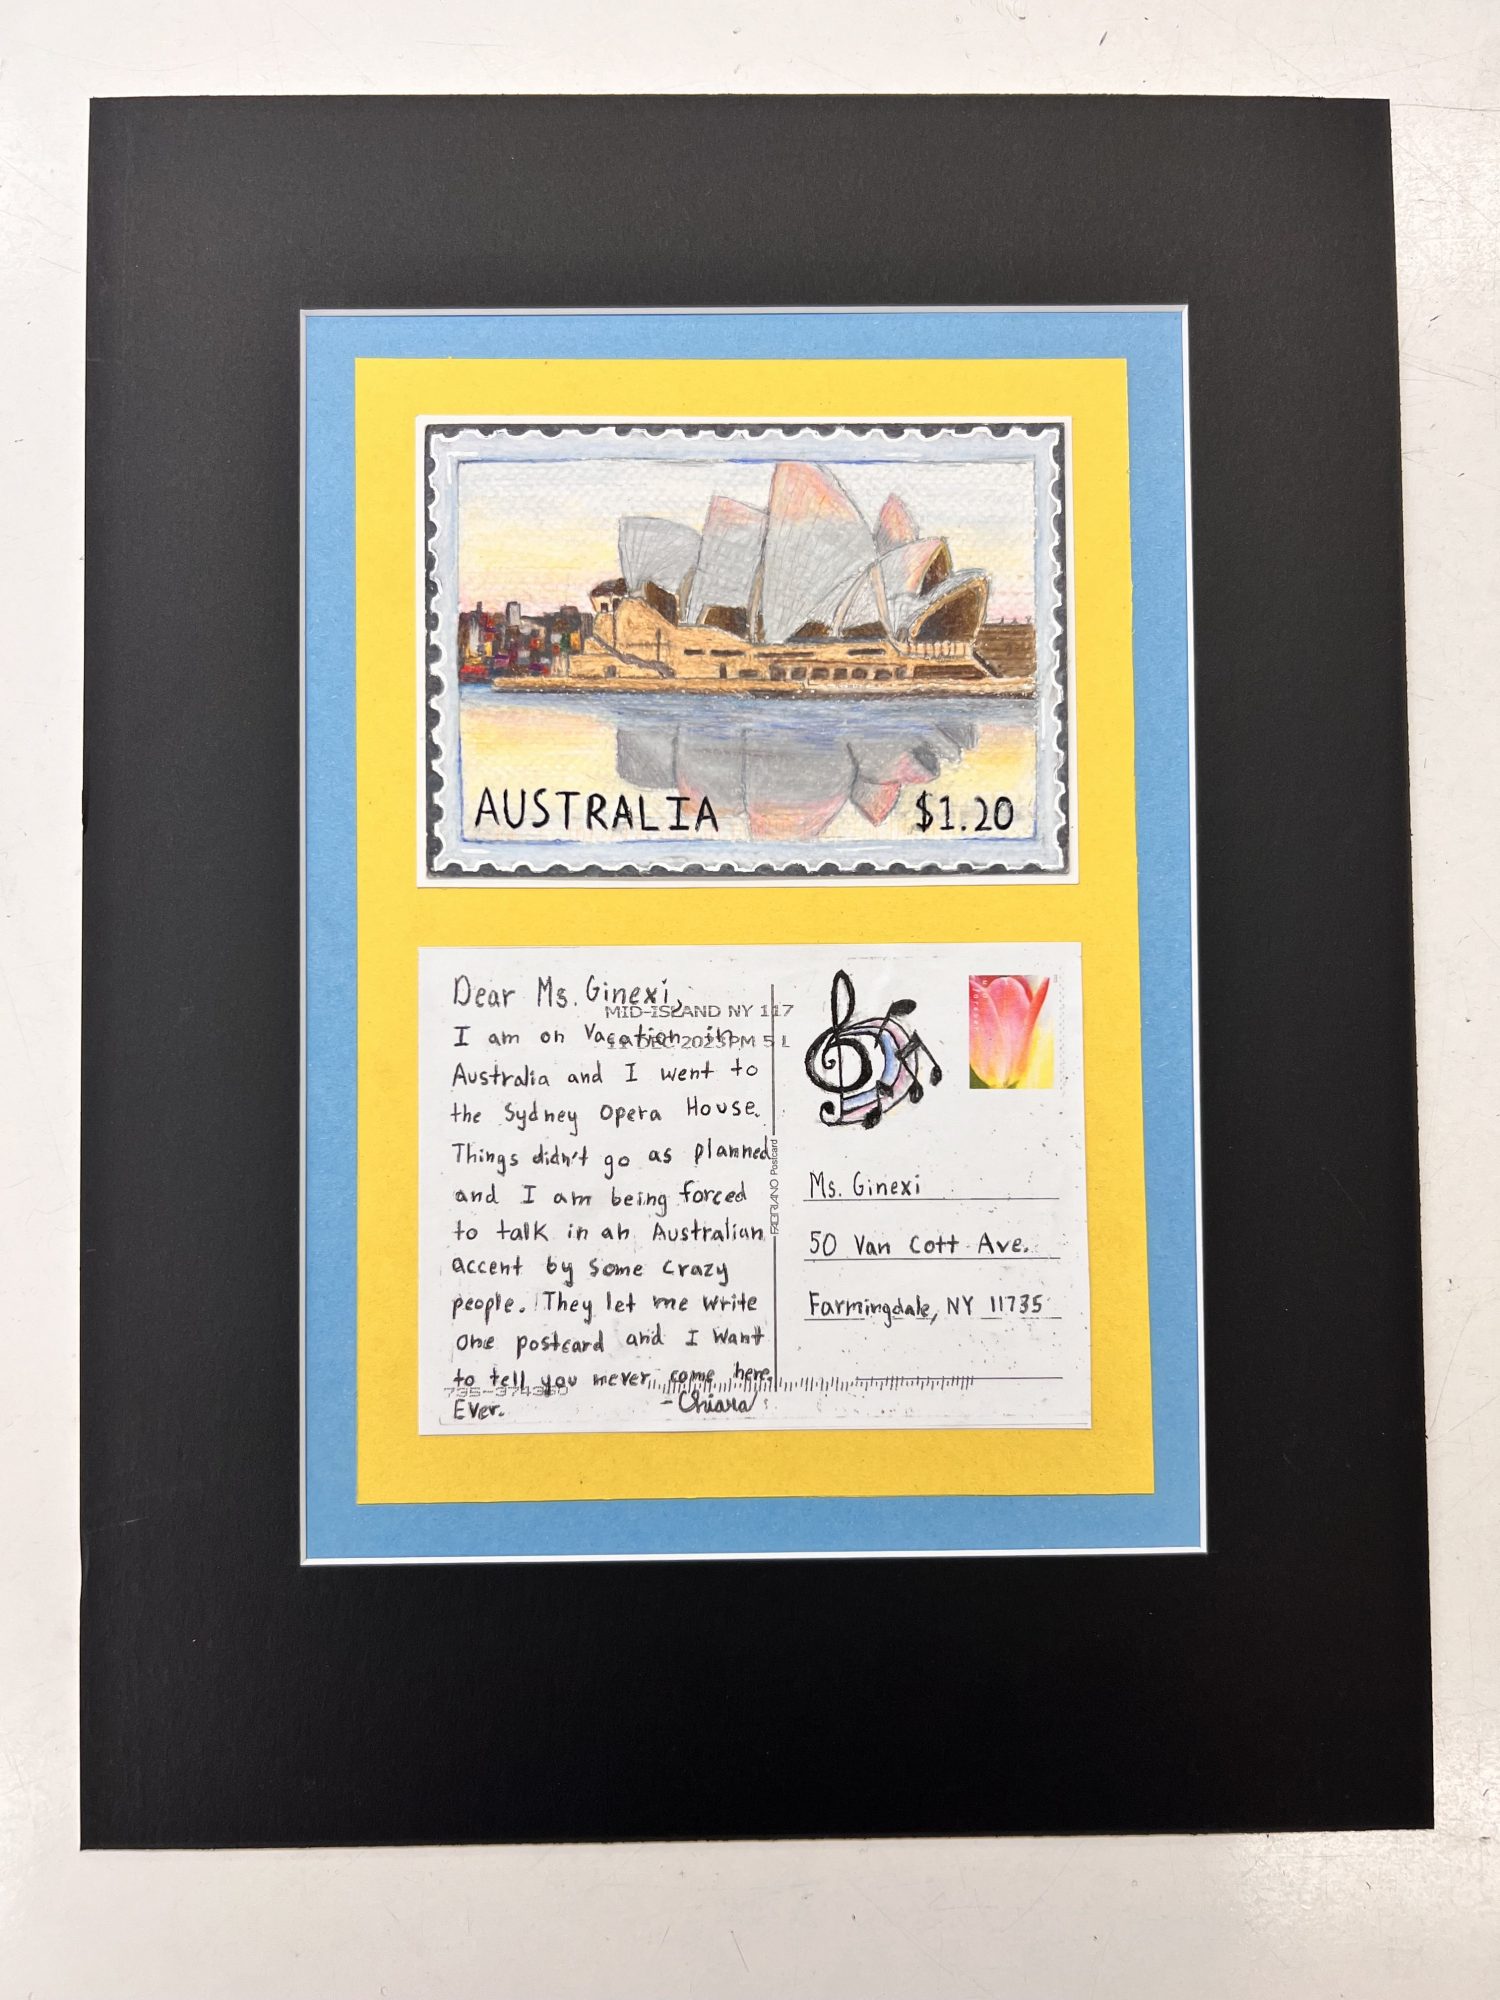 AUSTRALIA $1.20
Dear Ms. Ginexi,
MID-ISLAND NY 117
I am on Vacation in
11 DEC 2023 PM 5 L
Australia and I went to
the Sydney Opera House.
Things didn't go as planned
and I am being forced
to talk in an Australian
accent by some crazy
people. They let me write
one postcard and I want
to tell you never come here.
Ever.
-Chiara
FABRIANO Postcard
Ms. Ginexi
50 Van Cott Ave.
Farmingdale, NY 11735